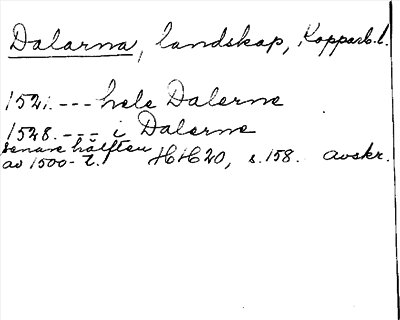 Dalarna, landskap, Kopparb.l.
1521. --- hele Dalerne
1528. --- i Dalerne
senare hälften
av 1500-t. HH20, s.158. avskr.